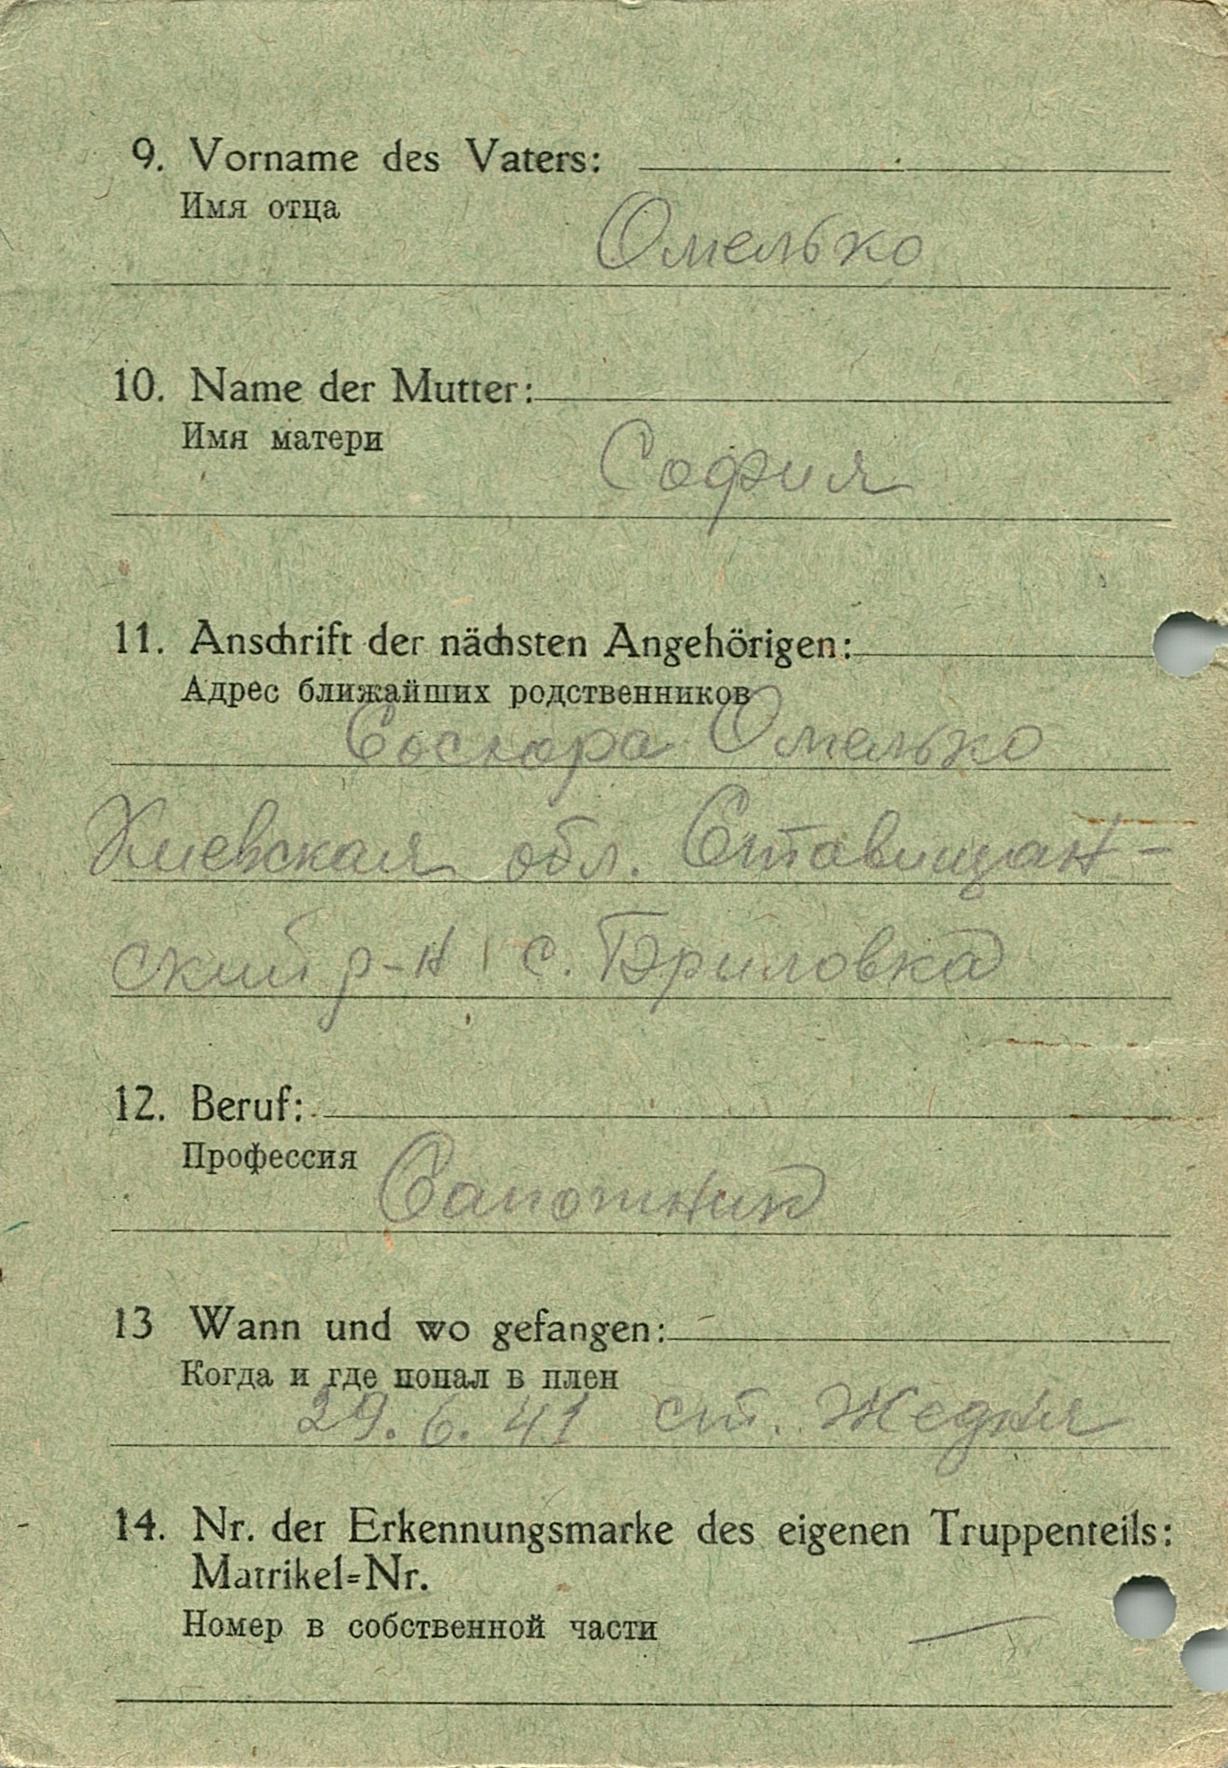 9. Vorname des Vaters:
Имя отца
Омелько
10. Name der Mutter:
Имя матери
София
11. Anschrift der nächsten Angehörigen:
Адрес ближайших родственников
Соскора Омелько
Киевская обл. Ставищан-
ский р-н с. Бриловка
12. Beruf:
Профессия
Сапожник
13 Wann und wo gefangen:
Когда и где попал в плен
29. 6. 41 ст. Жедня
14. Nr. der Erkennungsmarke des eigenen Truppenteils:
Matrikel=Nr.
Номер в собственной части
—